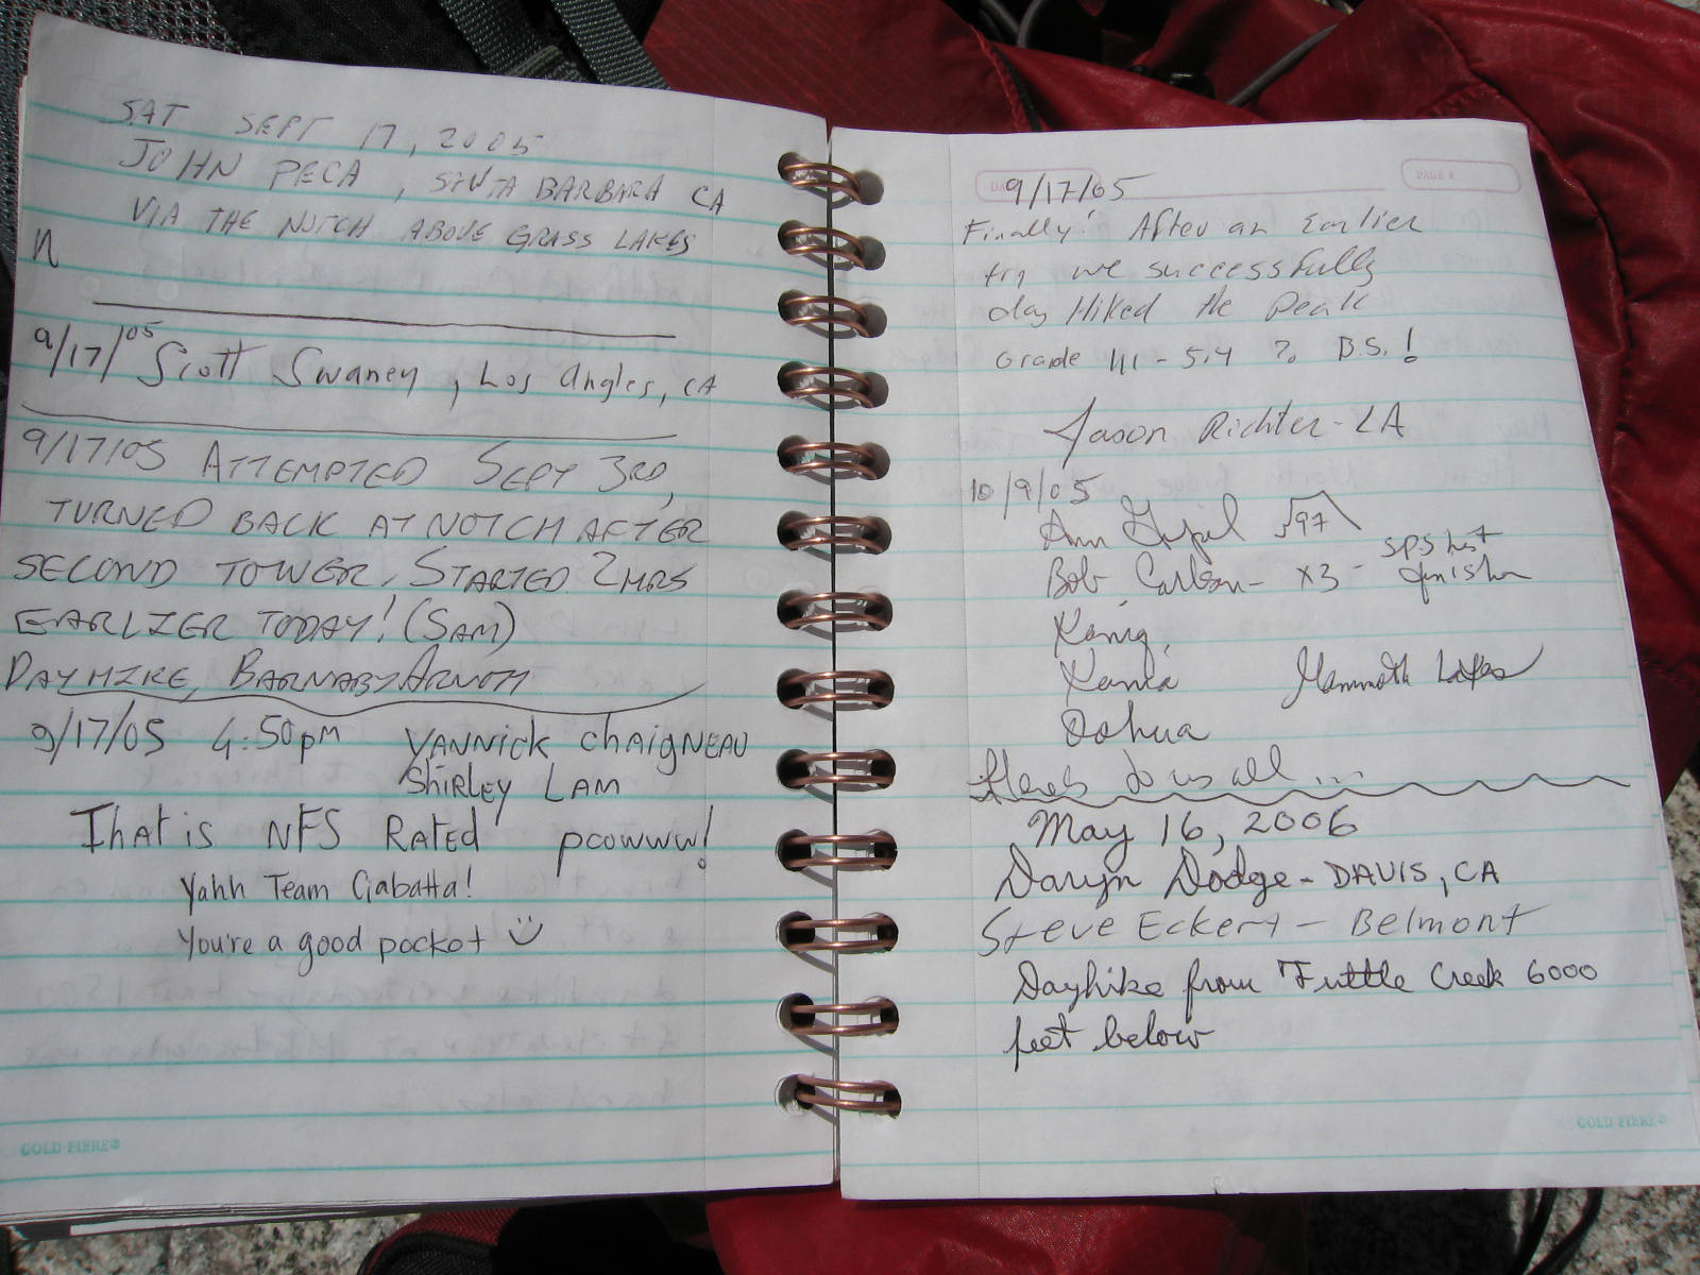 SAT SEPT 17, 2005
JOHN PECA, SANTA BARBARA CA
VIA THE NOTCH ABOVE GRASS LAKES
n
9/17/05 Scott Swaney, Los Angles, CA
9/17/05 ATTEMPTED SEPT 3RD,
TURNED BACK AT NOTCH AFTER
SECOND TOWER, STARTED 2HRS
EARLIER TODAY! (5AM)
DAYHIKE, BARNABY
9/17/05 4:50pm YANNICK CHAIGNEAU
SHIRLEY LAM
That is NFS RATED pcowww!
Yahh Team Ciabatta!
You're a good pocket
GOLD FIBRE®
PAGE #
9/17/05
Finally! After an Earlier
try we successfully
day Hiked the Peak
Grade III - 5.4 ? B.S.!
Jason Richter - LA
10/9/05
Ann √97
Bob Carlson - x3 - SPS list
finisher
Mammoth Lakes
Joshua
Here's to us all ...
May 16, 2006
Daryn Dodge - DAVIS, CA
Steve Eckert - Belmont
Dayhike from Tuttle Creek 6000
feet below
GOLD FIBRE®